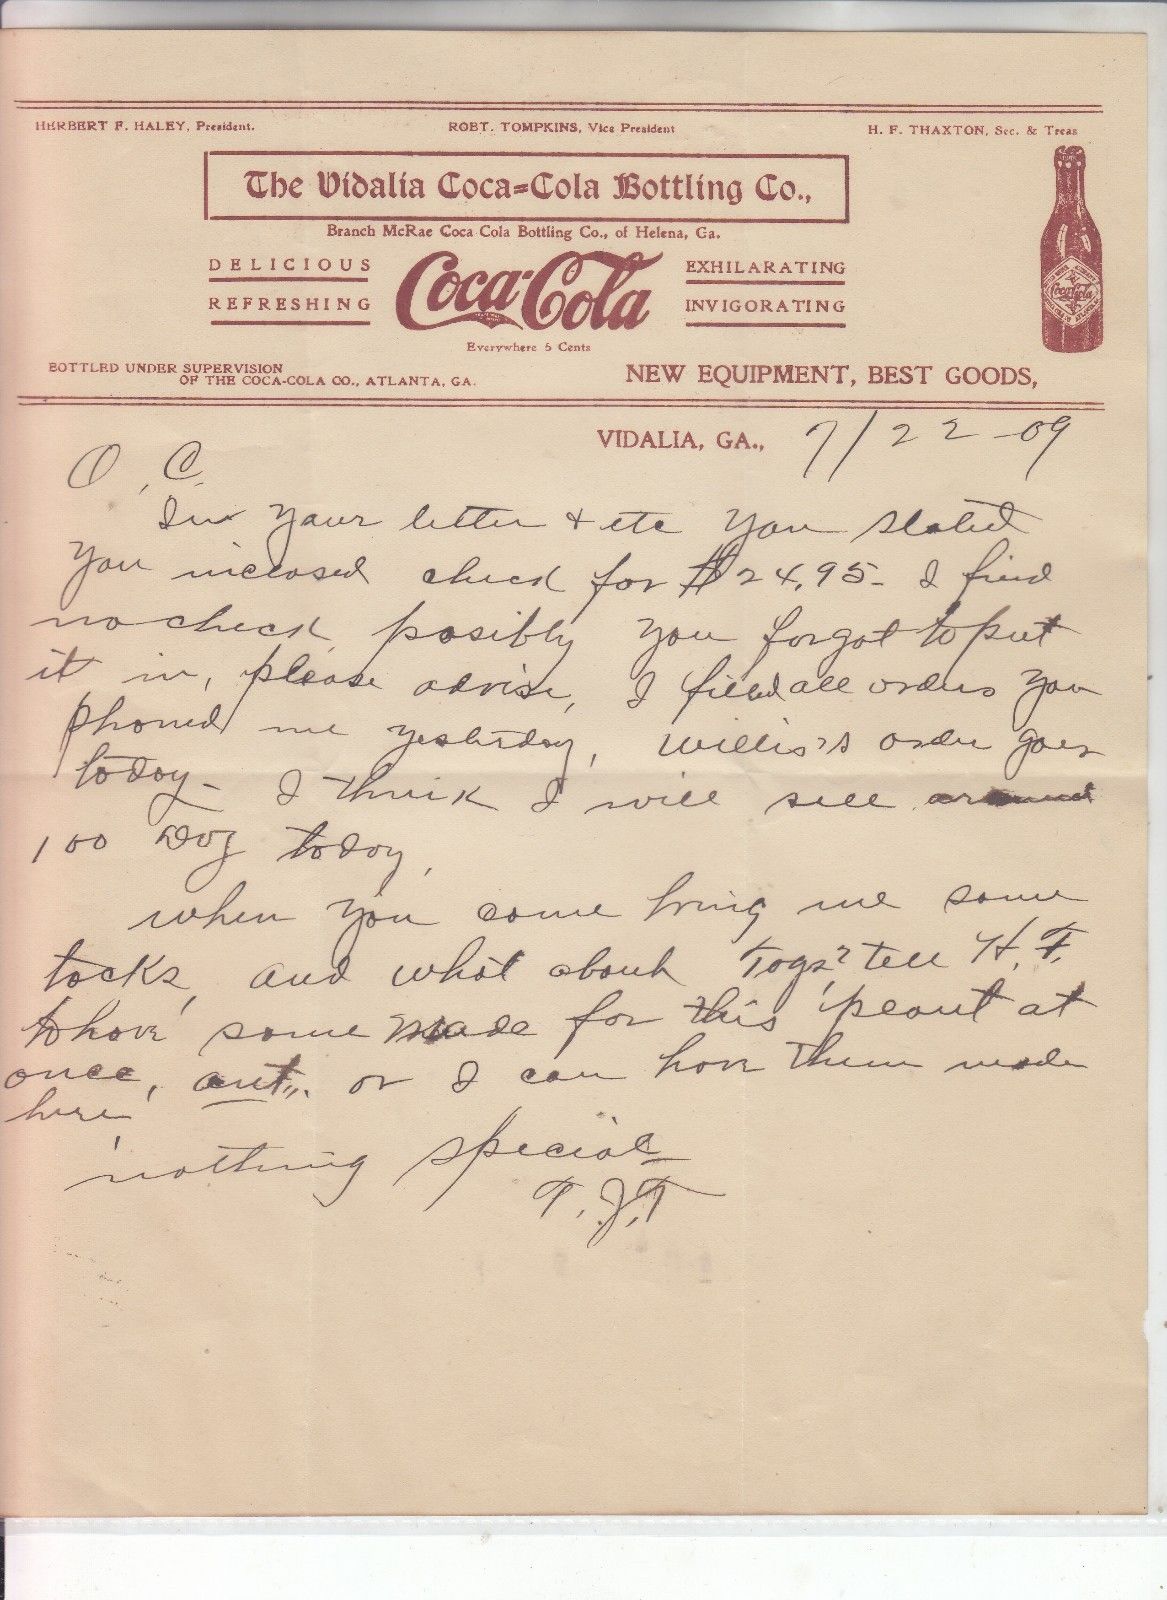 HERBERT F. HALEY, President.
ROBT. TOMPKINS, Vice President
H. F. THAXTON, Sec. & Treas
The Vidalia Coca=Cola Bottling Co.,
Branch McRae Coca Cola Bottling Co., of Helena, Ga.
DELICIOUS
REFRESHING
Coca-Cola
EXHILARATING
INVIGORATING
Everywhere 5 Cents
Coca-Cola
BOTTLED UNDER SUPERVISION
OF THE COCA-COLA CO., ATLANTA, GA.
NEW EQUIPMENT, BEST GOODS,
VIDALIA, GA., 7/22-09
O. C.
In your letter & etc you stated
you inclosed check for $24.95- I find
no check, posibly you forgot to put
it in, please advise, I filled all orders you
phoned me yesterday, Willis's order goes
today- I think I will sell around
100 Doz today,
when you come bring me some
tacks, and what about Togs? tell H. F.
to have some made for this peaut at
once, or I can have them made
here,
nothing special
T. J. T